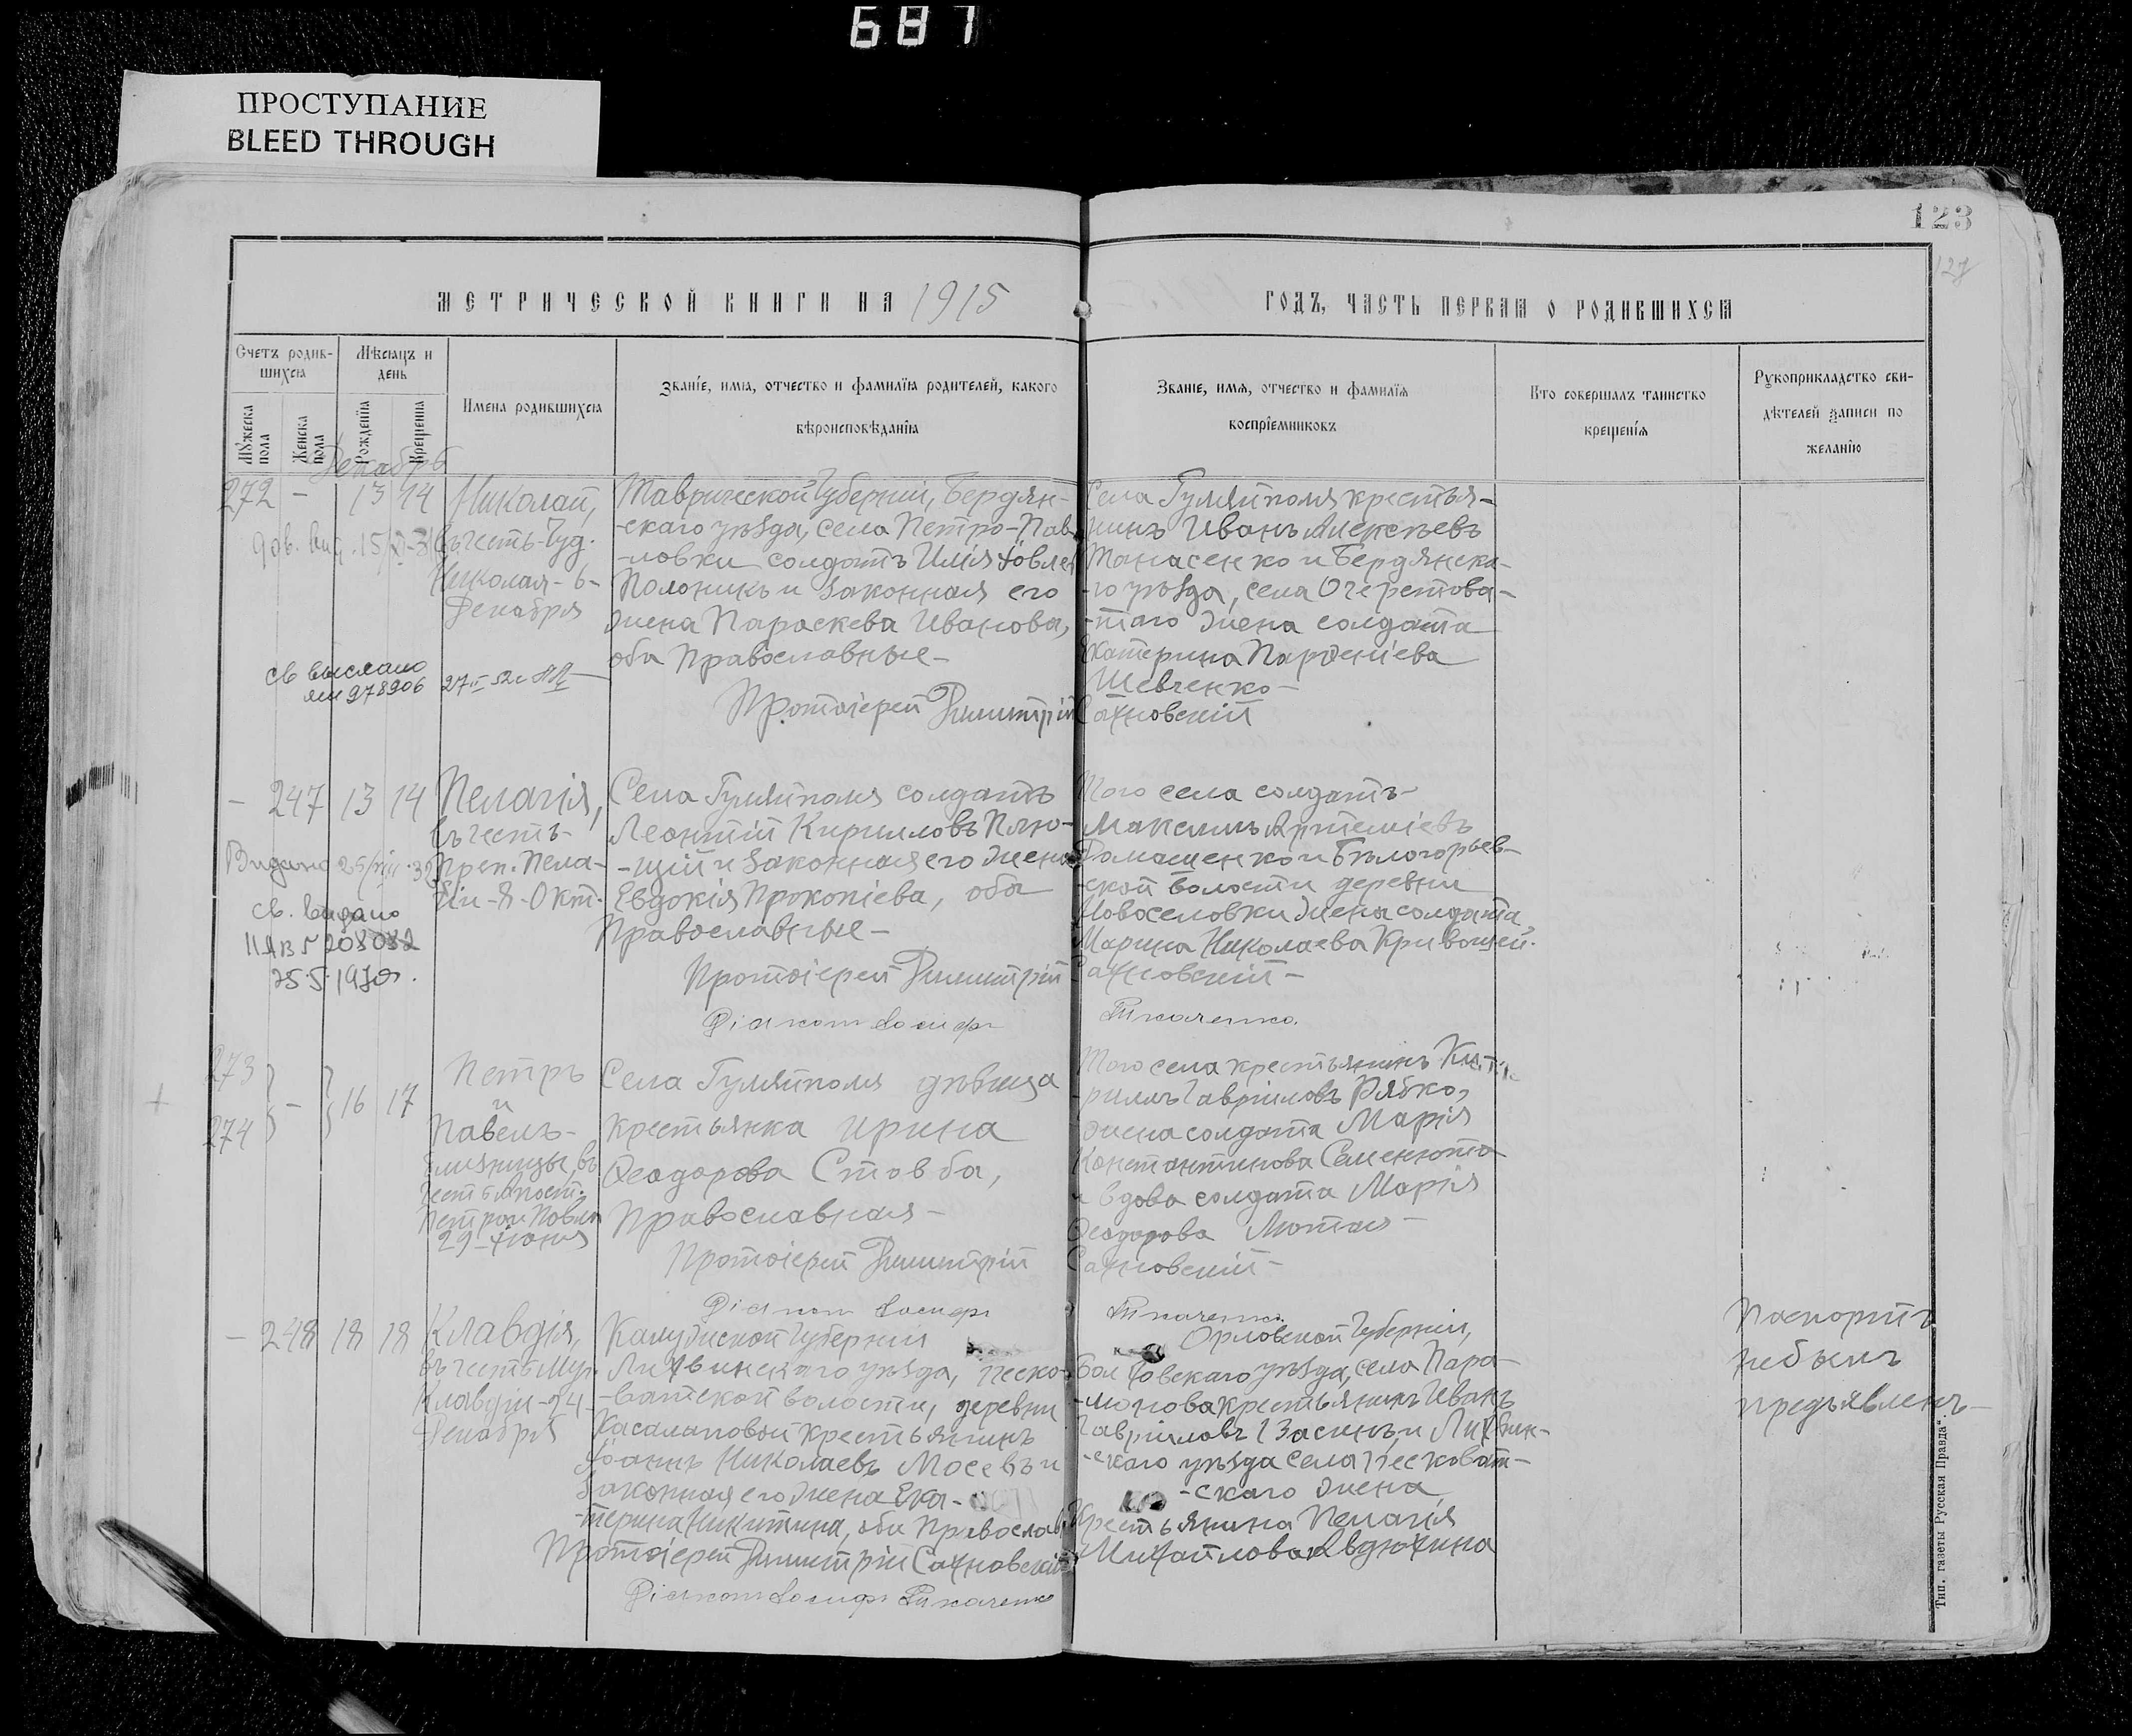 687
ПРОСТУПАНИЕ
BLEED THROUGH
123
127
МЕТРИЧЕСКОЙ КНИГИ НА 1915
ГОДЪ, ЧАСТЬ ПЕРВАЯ О РОДИВШИХСЯ
Счетъ родив-
шихся
Мѣсяцъ и
день
Мужеска
пола
Женска
пола
Рожденія
Крещенія
Имена родившихся
Званіе, имя, отчество и фамилія родителей, какого
вѣроисповѣданія
Званіе, имя, отчество и фамилія
воспріемниковъ
Кто совершалъ таинство
крещенія
Рукоприкладство сви-
дѣтелей записи по
желанію
Декабрь
272 - 13 14
Николай,
въ честь Чуд.
Николая - 6 -
Декабря
Таврической Губерніи, Бердян-
-скаго уѣзда, села Петро-Пав-
-ловки солдатъ Илія Іовлев
Полоникъ и законная его
жена Параскева Иванова,
оба Православные -
Протоіерей Димитрій Сахновскій
Села Гуляйполя крестья-
нинъ Иванъ Алексѣевъ
Танасенко и Бердянска-
-го уѣзда, села Очеретова-
-таго жена солдата
Екатерина Парѳеніева
Шевченко -
св выслано
978906
- 247 13 14
Пелагія,
въ честь
Преп. Пела-
гіи - 8 - Окт.
Видано
св. видано
208082
25 5. 1970.
Села Гуляйполя солдатъ
Леонтій Кирилловъ Плю-
-щій и законная его жена
Евдокія Прокопіева, оба
Православные -
Протоіерей Димитрій Сахновскій -
Діаконъ Іосифъ Ткаченко.
Того села солдатъ
Максимъ Артеміевъ
Домашенко и Бѣлогорьев-
-ской волости деревни
Новоселовки жена солдата
Марина Николаева Кривошей.
273
274
- 16 17
Петръ
и
Павелъ -
близнецы, въ
честь Апост.
Петра и Павла
29 - Іюня
Села Гуляйполя дѣвица
крестьянка Ирина
Ѳеодорова Стовба,
Православная -
Протоіерей Димитрій Сахновскій -
Діаконъ Іосифъ Ткаченко.
Того села крестьянинъ Ки-
риллъ Гавріиловъ Рябко,
жена солдата Марія
Константинова Семенюта
и вдова солдата Марія
Ѳеодорова Лютая -
- 248 18 18
Клавдія,
въ честь Муч.
Клавдіи - 24 -
Декабря
Калужской Губерніи
Лихвинскаго уѣзда, Песко-
-ватской волости, деревни
крестьянинъ
Іоаннъ Николаевъ Мосевъ и
законная его жена Ека-
-терина Никитина, оба Православн
Протоіерей Димитрій Сахновскій
Діаконъ Іосифъ Ткаченко
Орловской Губерніи,
Болховскаго уѣзда, села Пара-
-монова крестьянинъ Иванъ
Гавріиловъ и Лихвин-
-скаго уѣзда села Песковат-
-скаго жена
крестьянина Пелагія
Михайлова Авдюхина
Паспортъ
не былъ
предъявленъ -
Тип. газеты „Русская Правда“.